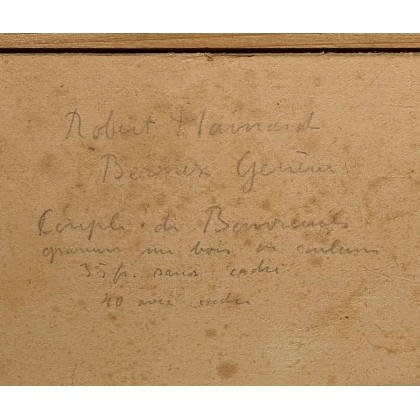 Robert Hainard
Bernex Genève
Couple de Bouvreuils
gravure sur bois en couleurs
35 fr. sans cadre
40 avec cadre